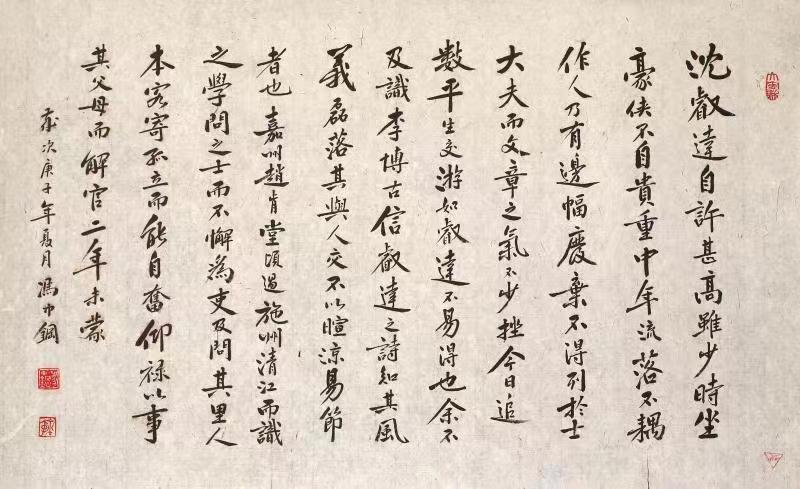 沈叡達自許甚高雖少時坐
豪俠不自貴重中年流落不耦
作人乃有邊幅廢棄不得列於士
大夫而文章之氣不少挫今日追
數平生交游如叡達不易得也余不
及識李博古信叡達之詩知其風
義磊落其與人交不以暄涼易節
者也嘉州趙肯堂頃過施州清江而識
之學問之士而不懈為吏及問其里人
本客寄孤立而能自奮仰祿以事
其父母而解官二年未蒙
歲次庚子年夏月馮中鋼